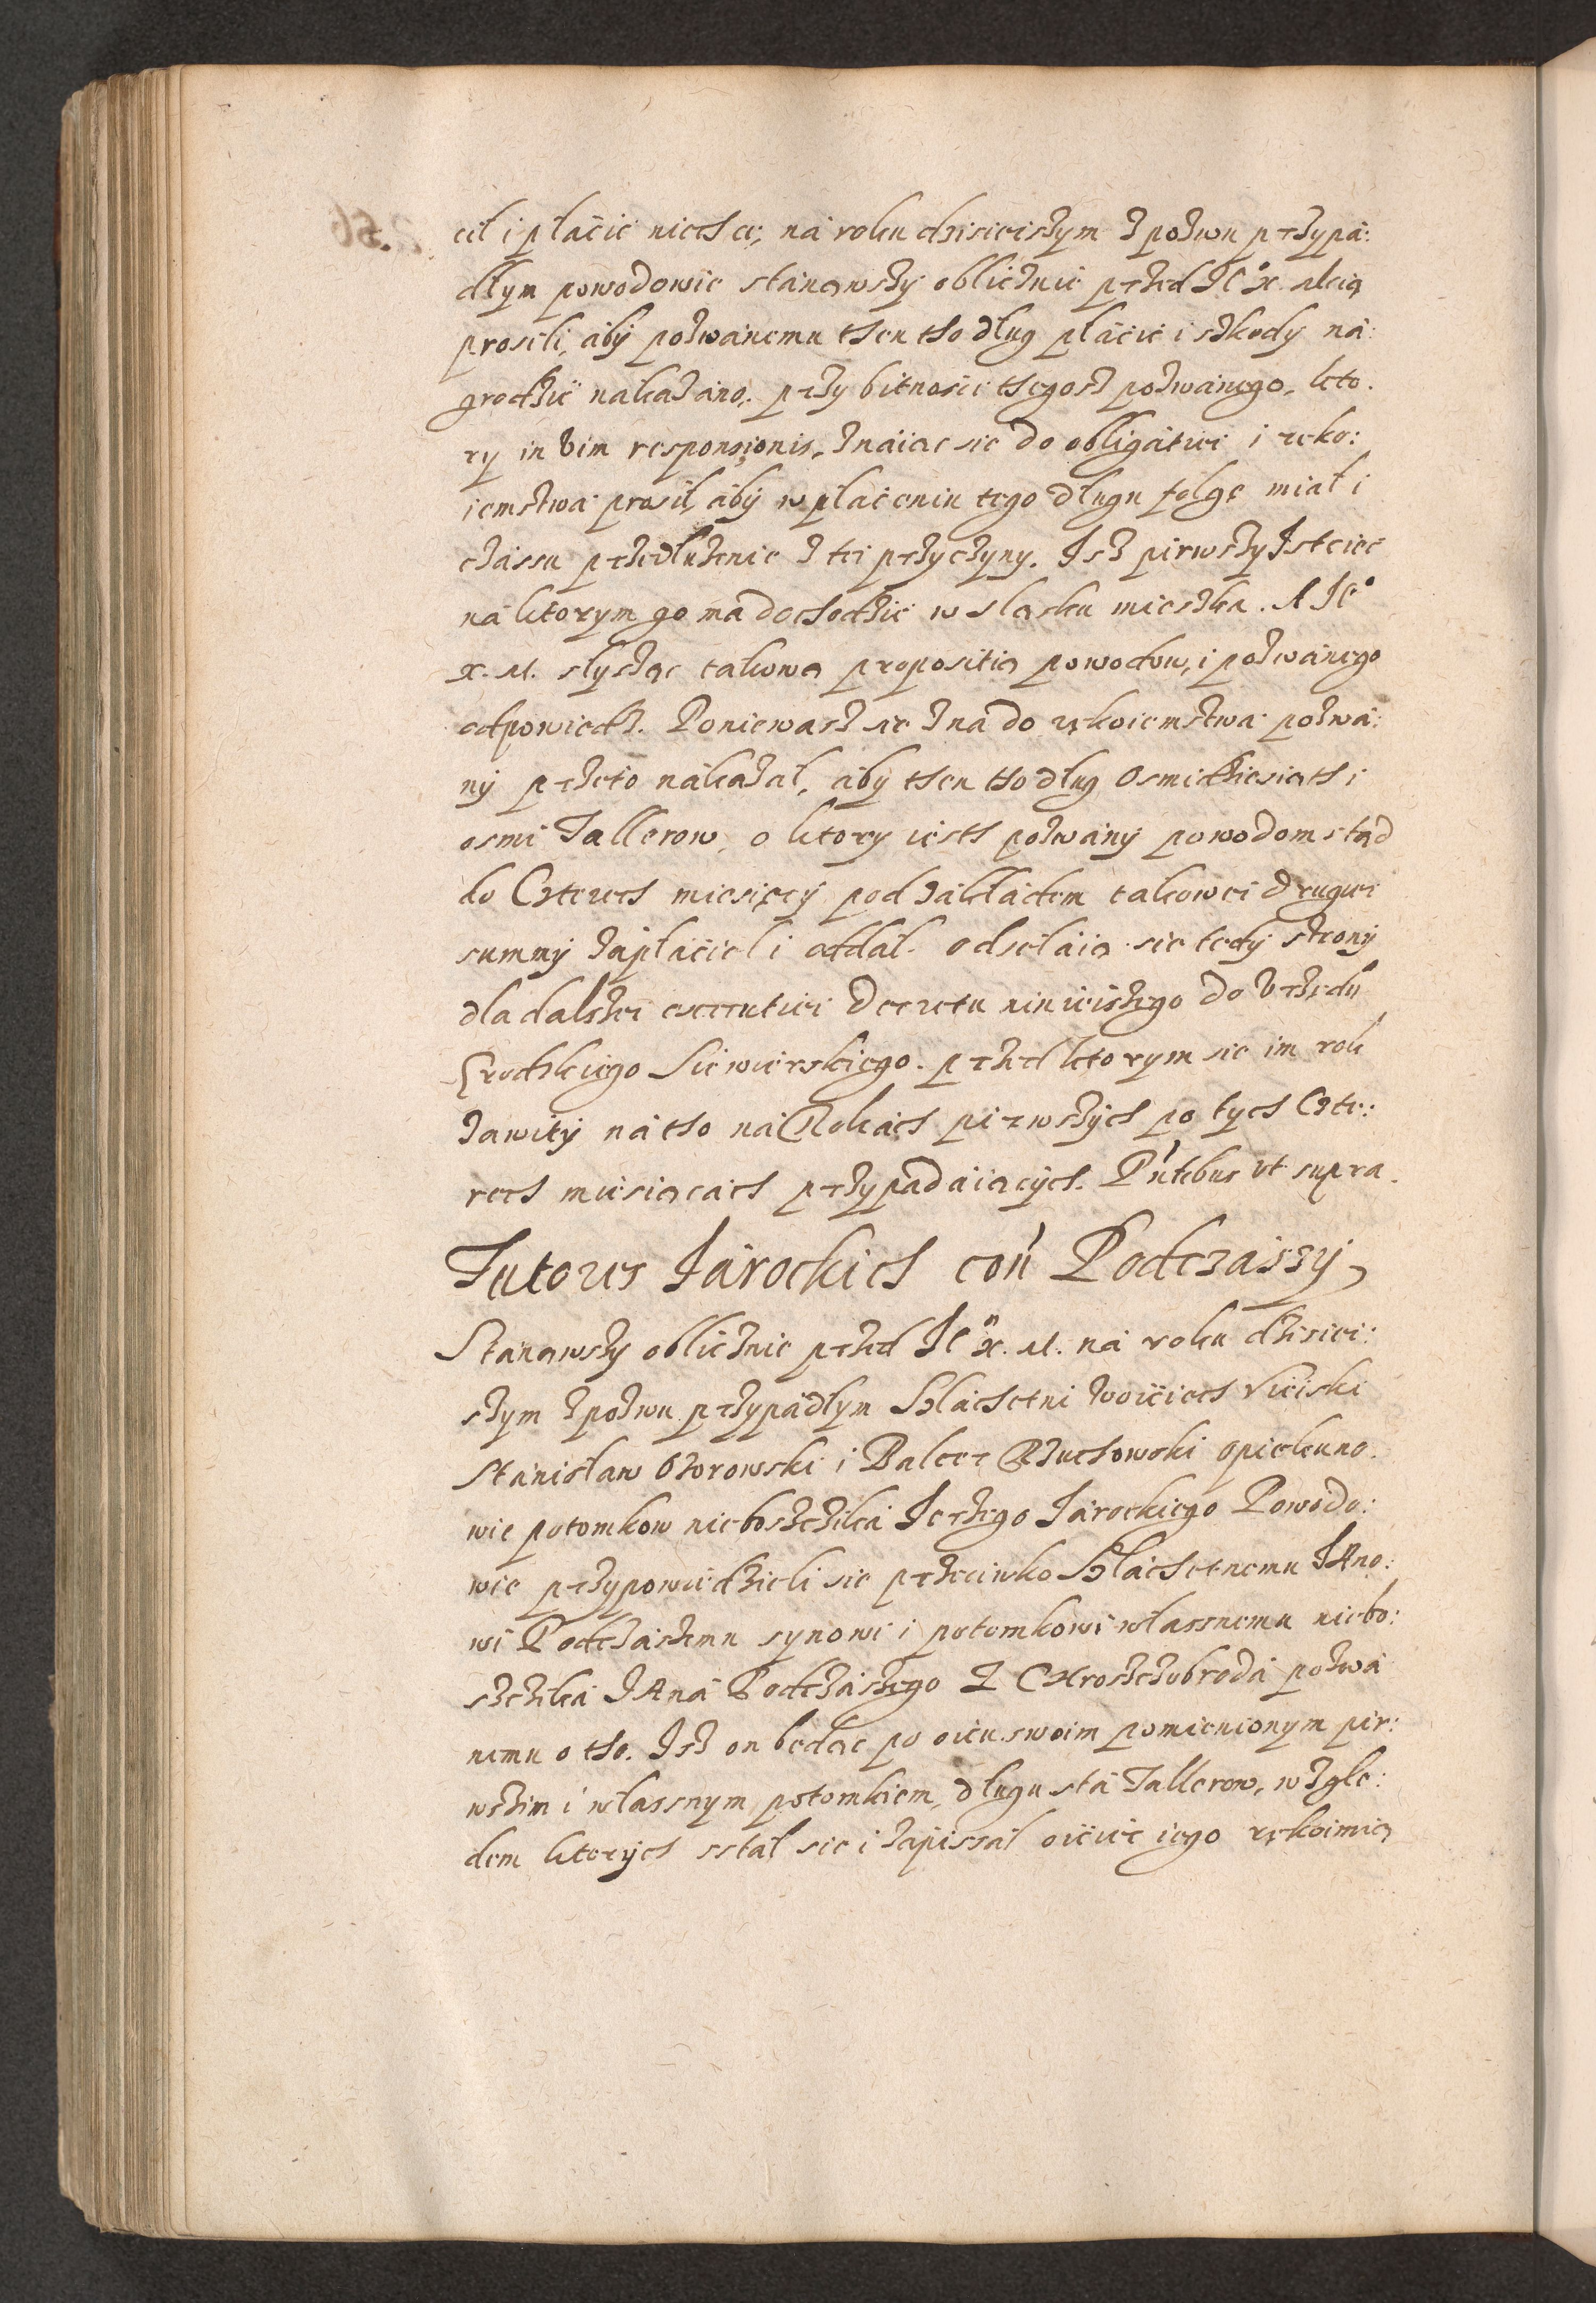 cil i płácic niechce, ná roku dzisieiszym z pozwu przypá:
dłym powodowie stánąwszy oblicznie przed Jeº x. mcią
prosili, áby pozwánemu then tho dług płácic i szkody ná:
grodzic nakazáno. przy bitnosci thegosz pozwánego. kto.
ry in vim responsionis, znáiąc sie do obligátiei i ręko:
iemstwá prosił, áby w płáceniu tego długu folgę miał i
czássu przedłużenie z tei przyczyny. Isz pirwszy Istciec
ná ktorym go ma dochodzic w Sląsku mieszka. A Jeº
x. M. słysząc takową propositią powodow, i pozwánego
odpowiedz. Poniewasz sie zna do rękoiemstwá pozwá:
ny przeto nákazał, áby then tho dług Osmidziesiąth i
osmi Tallerow, o ktory iesth pozwány powodom stąd
do Czterech miesięcy pod zakłádem takowei drugiei
summy zápłácieł i oddał. Odsełáią sie tedy strony
dla dalszei executiei Decretu ninieiszego do Vrzędu
Grodzkiego Siewierskiego. przed ktorym sie im rok
zawity ná tho ná Rokách pirwszych po tych Czte:
rech miesiącách przypadáiących. Pñtebus vt supra.
Tutores Járockich coñ Podczászy
Stánąwszy oblicznie przed Jeº x. M. ná roku dzisiei:
szym z pozwu przypádłym Szláchetni Woiciech Vieiski
Stánisław Ozorowski i Balcer Rzuchowski opiekuno.
wie potomkow nieboszczika Jerzego Járockiego Powodo:
wie przypowiedzieli sie przeciwko Szláchetnemu JAno:
wi Podczászemu synowi i potomkowi własnemu niebo:
szczika JAná Podczászego Z CHroszczobrodá pozwá
nemu o tho. Isz on będąc po oicu swoim pomienionym pir:
wszim i własnym potomkiem, długu stá Tallerow, w zglę:
dem ktorych sstał sie i zápissał oiciec iego rękoimią